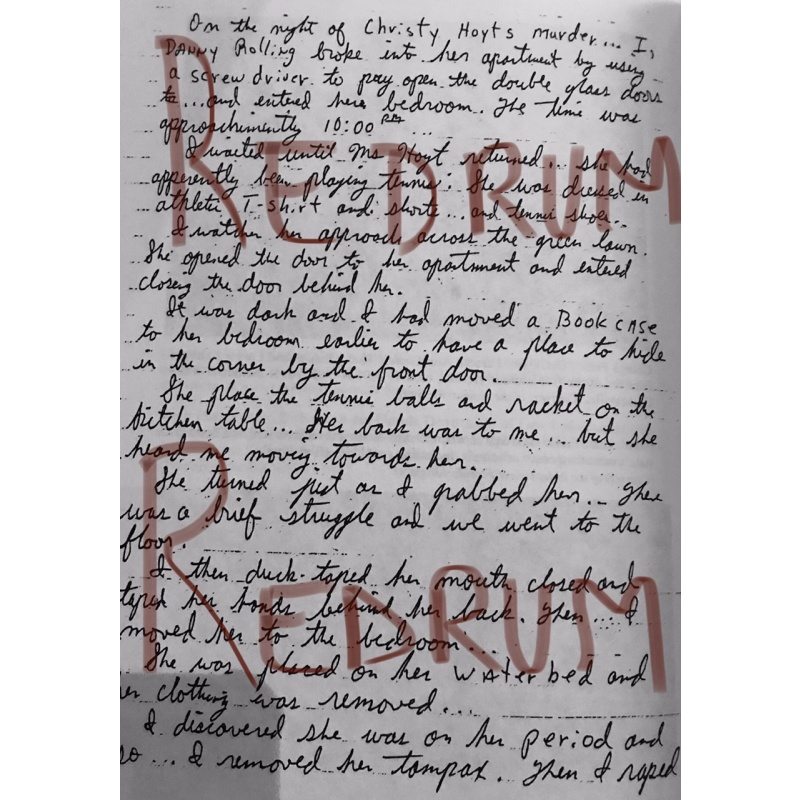 On the night of Christy Hoyt's murder... I,
DANNY Rolling broke into her apartment by using
a screwdriver to pry open the double glass doors
to... and entered here bedroom. The time was
approachimently 10:00 PM ...
I waited until Ms Hoyt returned... she had
apperently been playing tennis. She was dressed in
athletic T-shirt and shorts... and tennis shoes..
I watcher her approach across the green lawn.
She opened the door to her apartment and entered
closing the door behind her.
It was dark and I had moved a BOOK CASE
to her bedroom earlier to have a place to hide
in the corner by the front door.
She place the tennis balls and racket on the
kitchen table... Her back was to me... but she
heard me moving towards her.
She turned just as I grabbed her... There
was a brief struggle and we went to the
floor.
I then duck-taped her mouth closed and
taped her hands behind her back. Then... I
moved her to the bedroom...
She was placed on her waterbed and
er clothing was removed...
I discovered she was on her period and
so... I removed her tampax. Then I raped
REDRUM
REDRUM